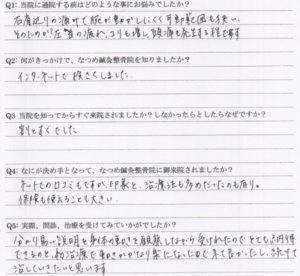 Q1: 当院に通院する前はどのような事にお悩みでしたか？
右肩辺りの痛みで腕が動かしにくく可動範囲も狭い。
そのためか？左の疲れ、コリも増し頭痛も発生する程です
Q2: 何がきっかけで、なつめ鍼灸整骨院を知りましたか？
インターネットで検さくしました。
Q3: 当院を知ってからすぐ来院されましたか？しなかったとしたらなぜですか？
割とすぐでした
Q4: なにが決め手となって、なつめ鍼灸整骨院に御来院されましたか？
ネットの口コミもですが、印象と、治療法も多のだったのも有り。
保険も使えることも大きい
Q5: 実際、問診、治療を受けてみていかがでしたか？
分かり易い説明と身体の動きを観察しながら受けれたのでとても信用
できるのと、初治療で動きがかなり楽になったので来て良かったし、続けて
治していきたいと思います